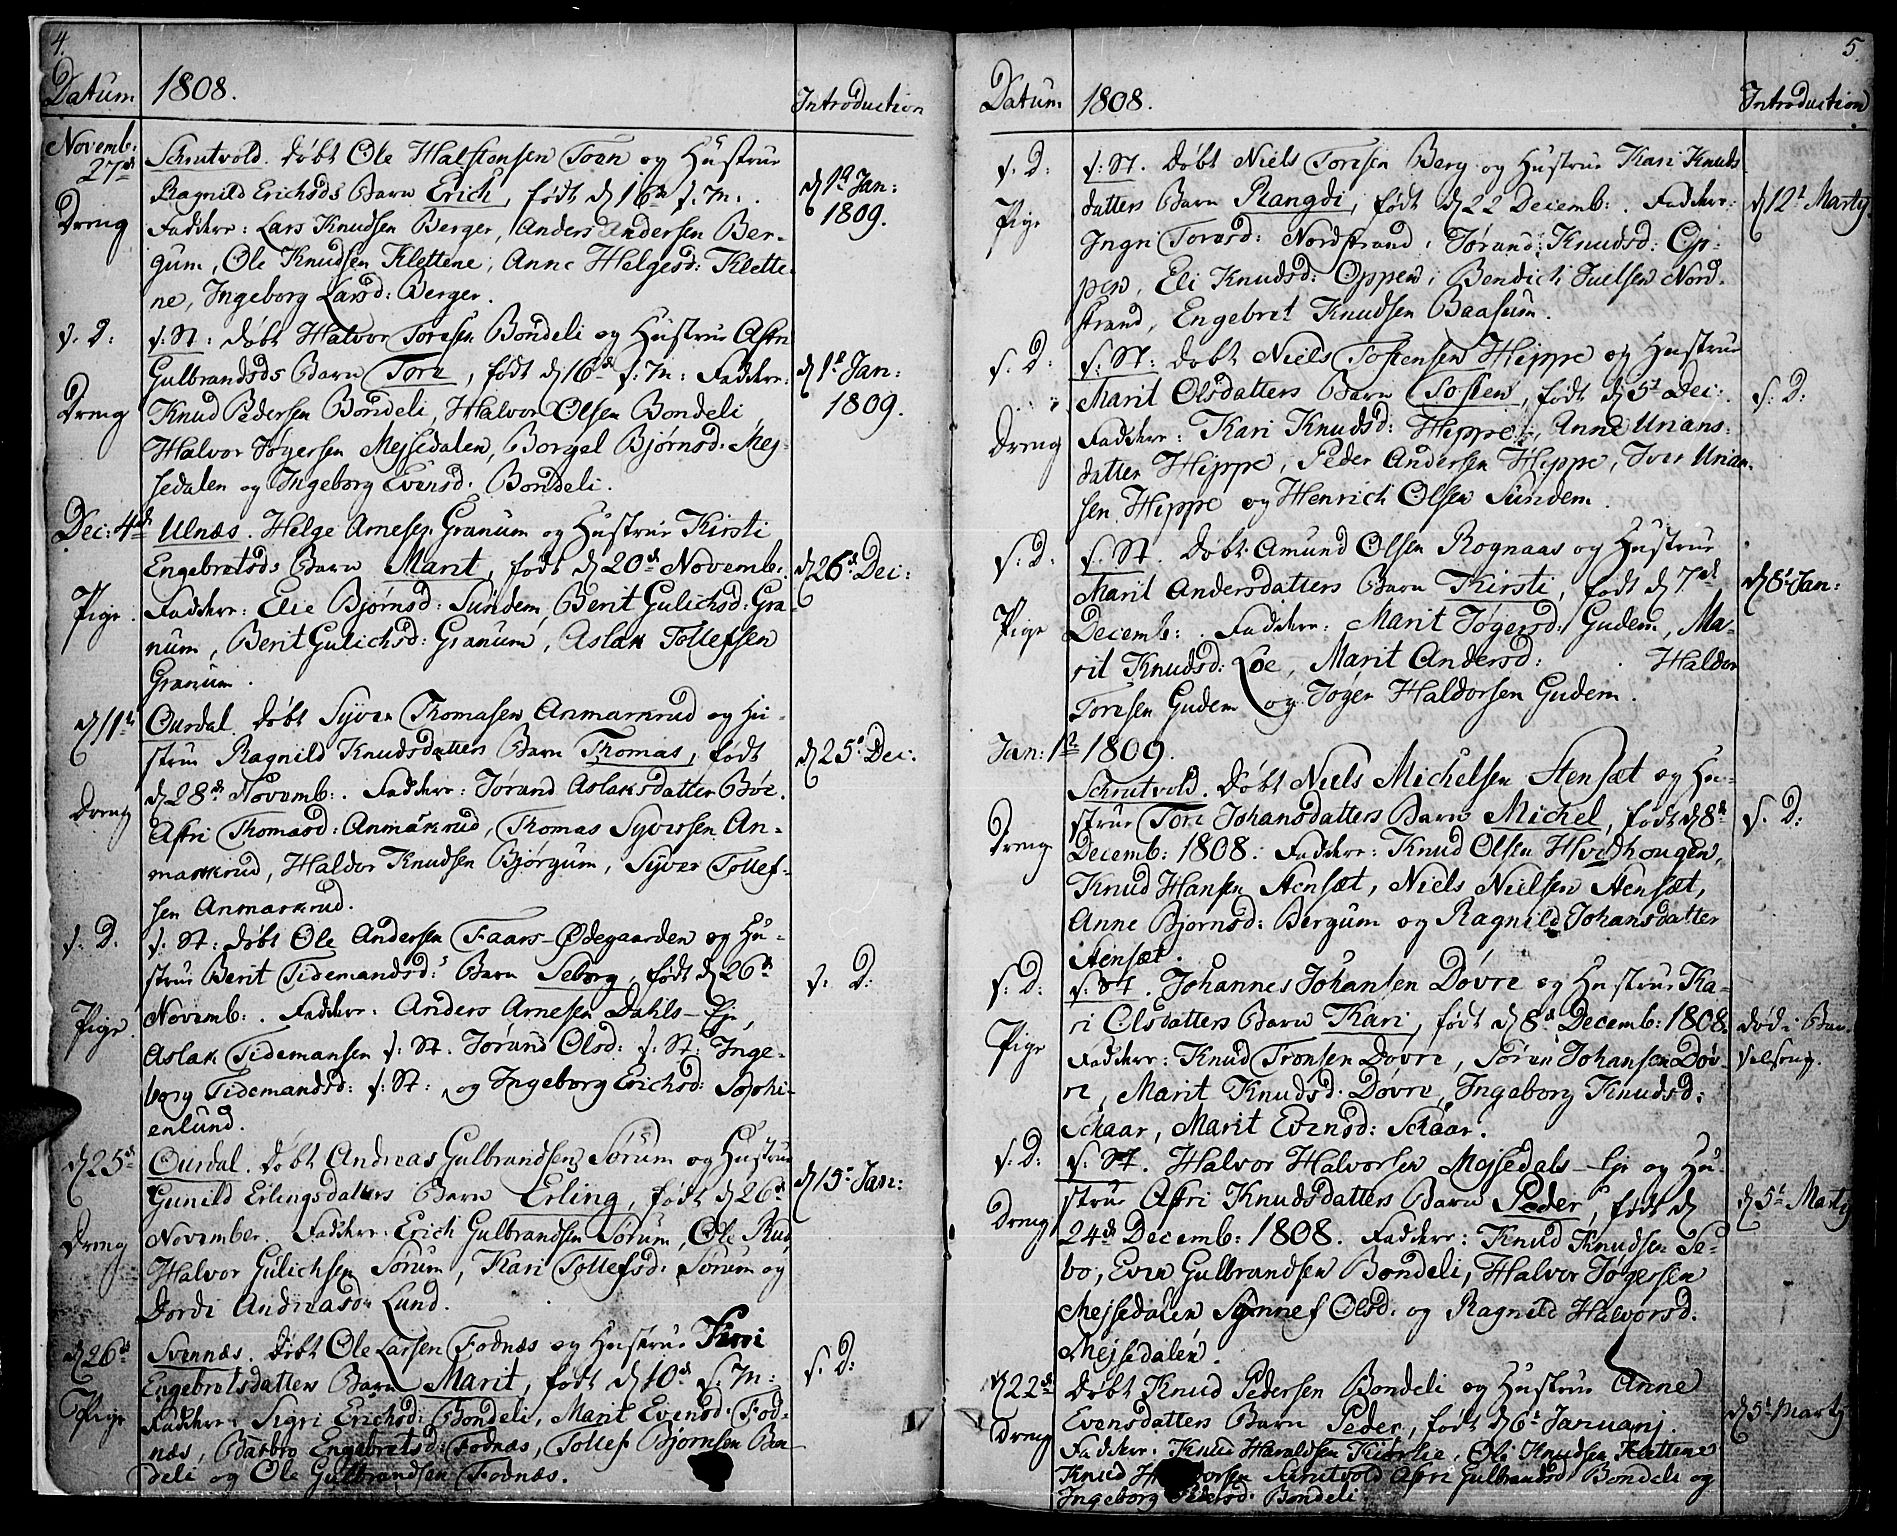 4.
Datum 1808. Introduction
Novemb: 27de Schrutvold. døbt Ole Halstensen Toen og Hustrue
Dreng Ragnild Erichsds Barn Erich, født d 16de s: M:. d 1ste Jan: 1809.
Fadder: Lars Knudsen Berger, Anders Andersen Ber-
gum, Ole Knudsen Klettene, Anne Helgesd: Klette-
ne, Ingeborg Larsd: Berger.
s. D: s: St: døbt Halvor Toresen Bondeli og Hustrue Astri
Gulbrandsds Barn Tore, født d 16de s: M: Fadder: d 1ste Jan: 1809.
Dreng Knud Pedersen Bondeli, Halvor Olsen Bondeli
Halvor Jøgersen Mejsedalen, Borgel Bjørnsd: Mej-
sedalen og Ingeborg Evensd: Bondeli.
Dec: 4de Ulnæs. Helge Arnesen Granum og Hustrue Kirsti
Engebretsds Barn Marit, født d 20de Novemb: d 26de Dec:
Pige. Fadder: Elie Bjørnsd: Sundem, Berit Gulichsd: Gra-
num, Berit Gulichsd: Granum, Aslak Tollefsen
Granum.
d 11te Ourdal. døbt Syver Thomasen Anmarkrud og Hu-
strue Ragnild Knudsdatters Barn Thomas, født d 25de Dec:
Dreng d 28de Novemb:. Fadder: Jørand Aslaksdatter Bøe.
Astri Thomasd: Anmarkrud, Thomas Syversen An-
markrud, Haldor Knudsen Bjørgum, Syver Tollef-
sen Anmarkrud.
s. D. s: St: døbt Ole Andersen Faars-Ødegaarden og Hu-
strue Berit Tidemandsd:s Barn Seborg, født d 26de s. D:
Pige. Novemb:. Fadder: Anders Arnesen Dahls-Ejr,
Aslak Tidemansen s: St. Jørand Olsd: s: St: Inge-
borg Tidemandsd: s: St: og Ingeborg Erichsd: Sophi-
enlund.
d 25de Ourdal. døbt Andreas Gulbrandsen Sørum og Hustrue
Gunild Erlingsdatters Barn Erling, født d 26de d 15de Jan:
Dreng November. Fadder: Erich Gulbrandsen Sørum, Ole Rud,
Halvor Gulichsen Sørum, Kari Tollefsd: Sørum og
Dordi Andreasd: Lund.
d 26de Svennæs. døbt Ole Larsen Fodnæs og Hustrue Kari
Engebretsdatters Barn Marit, født d 10de s: M: s. D:
Pige Fadder: Sigri Erichsd: Bondeli, Marit Evensd: Fod-
næs, Barbro Engebretsd: Fodnæs, Tollef Bjørnsen Bon-
deli og Ole Gulbrandsen Fodnæs.
5.
Datum 1808. Introduction
s. D: s: St. døbt Niels Toresen Berg og Hustrue Kari Knuds
Pige datters Barn Rangdi, født d 22 Decemb:. Fadder: d 12te Martij
Ingri Torasd: Nordstrand, Jørand Knudsd: Op-
pen, Eli Knudsd: Oppen, Bendich Juelsen Nord-
strand, Engebret Knudsen Baasum.
s. D: s: St: døbt Niels Tostensen Hippe og Hustrue
Marit Olsdatters Barn Tosten, født d 5te Dec: s: D:
Dreng Fadder: Kari Knudsd: Hippe, Anne Urians-
datter Hippe, Peder Andersen Hippe, Iver Urian-
sen Hippe og Henrich Olsen Sundem.
s. D: s: St. døbt Amund Olsen Rognaas og Hustrue
Marit Andersdatters Barn Kirsti, født d 7de d 8de Jan:
Pige Decemb:. Fadder: Marit Jøgersd: Gudem, Ma-
rit Knudsd: Loe, Marit Andersd: Haldor
Toresen Gudem og Jøger Haldorsen Gudem.
Jan: 1ste 1809.
Schrutvold. døbt Niels Michelsen Stensæt og Hu-
Dreng strue Tori Johansdatters Barn Michel, født d 8de s. D:
Decemb: 1808. Fadder: Knud Olsen Hvidhougen,
Knud Hansen Stensæt, Niels Nielsen Stensæt,
Anne Bjornsd: Bergum og Ragnild Johansdatter
Stensæt.
s. D: s: St. Johannes Johansen Døvre og Hustrue Ka-
Pige ri Olsdatters Barn Kari, født d 8de Decemb: 1808. død i Bar-
Fadder: Knud Tronsen Døvre, Søren Johansen Døv- selseng.
re, Marit Knudsd: Døvre, Ingeborg Knudsd:
Schaar, Marit Evensd: Schaar.
s. D: s: St. Halvor Halvorsen Mejsedals-Ejr og Hu-
Dreng strue Astri Knudsdatters Barn Peder, født d d 5te Martij
24de Decemb: 1808. Fadder: Knud Knudsen Se-
bo, Even Gulbrandsen Bondeli, Halvor Jøgersen
Mejsedalen Synnef Olsd: og Ragnild Halvorsd:
Mejsedalen.
d 22de døbt Knud Pedersen Bondeli og Hustrue Anne
Dreng Evensdatters Barn Peder, født d 6te Januarij. d 5te Martij
Fadder: Knud Haraldsen, Ole Knudsen Klettene
Knud Schrutvold Astri Gulbrandsd Bondeli og
Ingeborg Pedersd: Bondeli